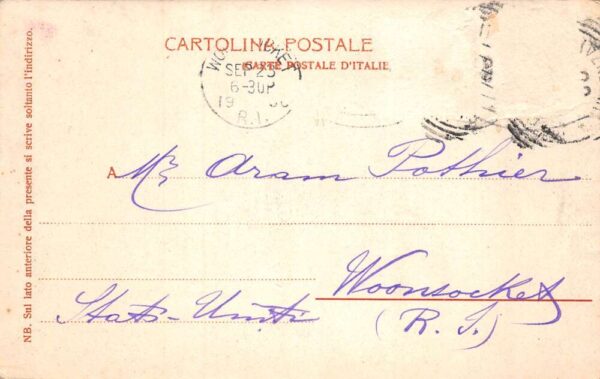 CARTOLINA POSTALE
(CARTE POSTALE D'ITALIE)
SEP 23
6-30P
19
R.I.
A Mr Aram Pothier
Woonsocket
Stati-Uniti (R. I.)
NB. Sul lato anteriore della presente si scrive soltanto l'indirizzo.